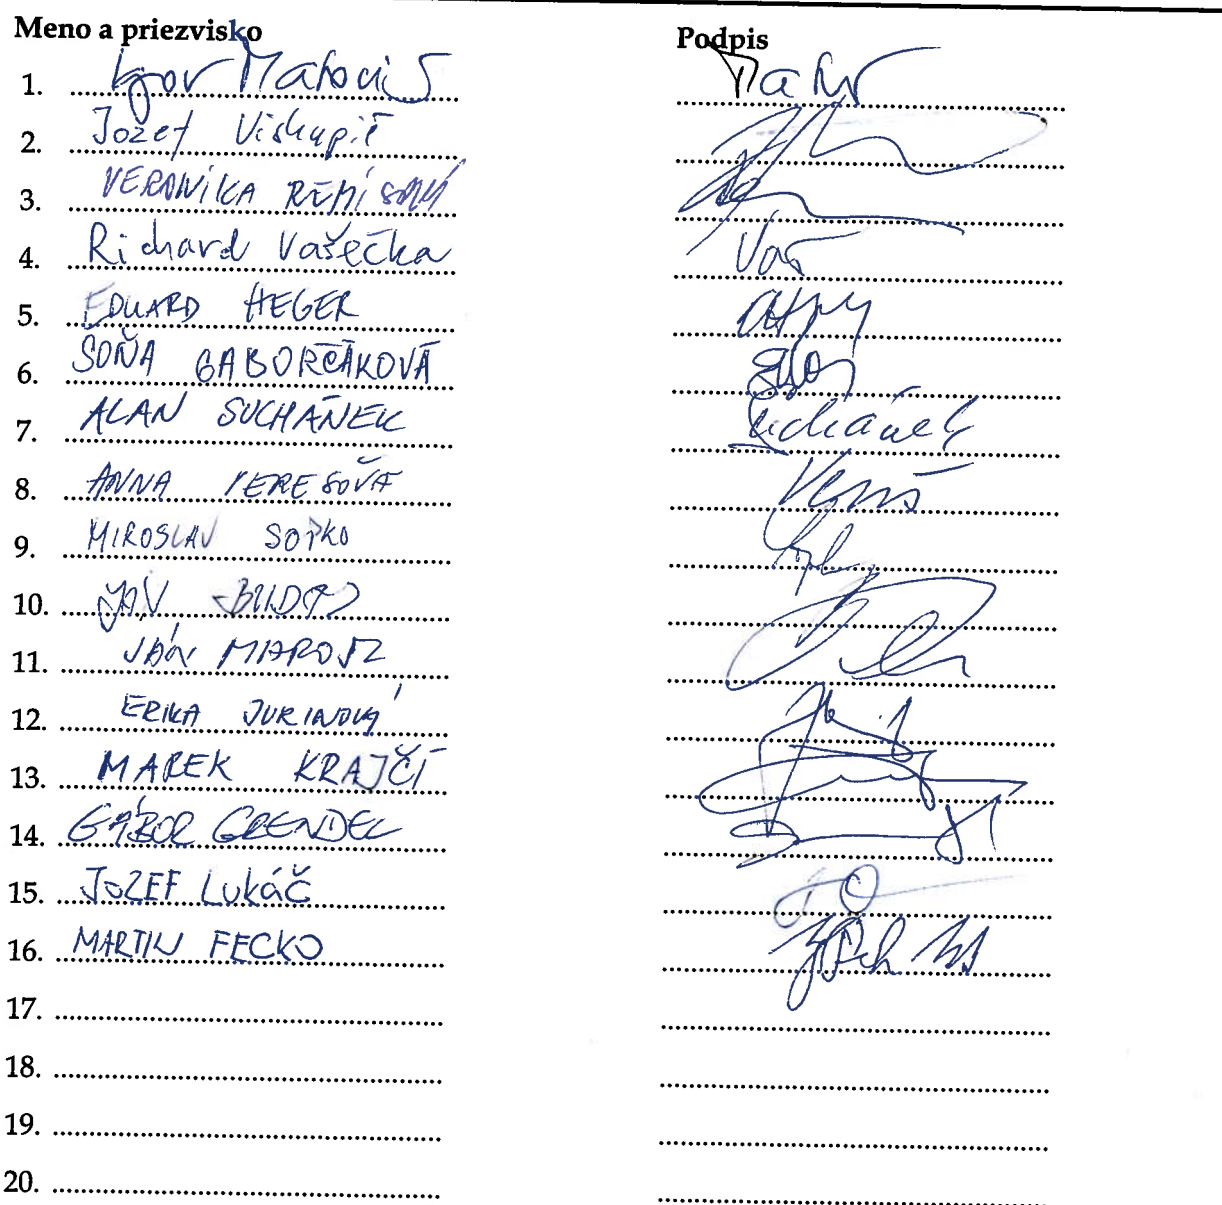 Meno a priezvisko Podpis
1. Igor Matovič
2. Jozef Viskupič
3. VERONIKA REMIŠOVÁ
4. Richard Vašečka
5. EDUARD HEGER
6. SOŇA GABORČÁKOVÁ
7. ALAN SUCHÁNEK Suchánek
8. ANNA VEREŠOVÁ
9. MIROSLAV SOPKO
10. JÁN BUDAJ
11. JÁN MAROSZ
12. ERIKA JURINOVÁ
13. MAREK KRAJČÍ
14. GÁBOR GRENDEL
15. JOZEF LUKÁČ
16. MARTIN FECKO
17.
18.
19.
20.